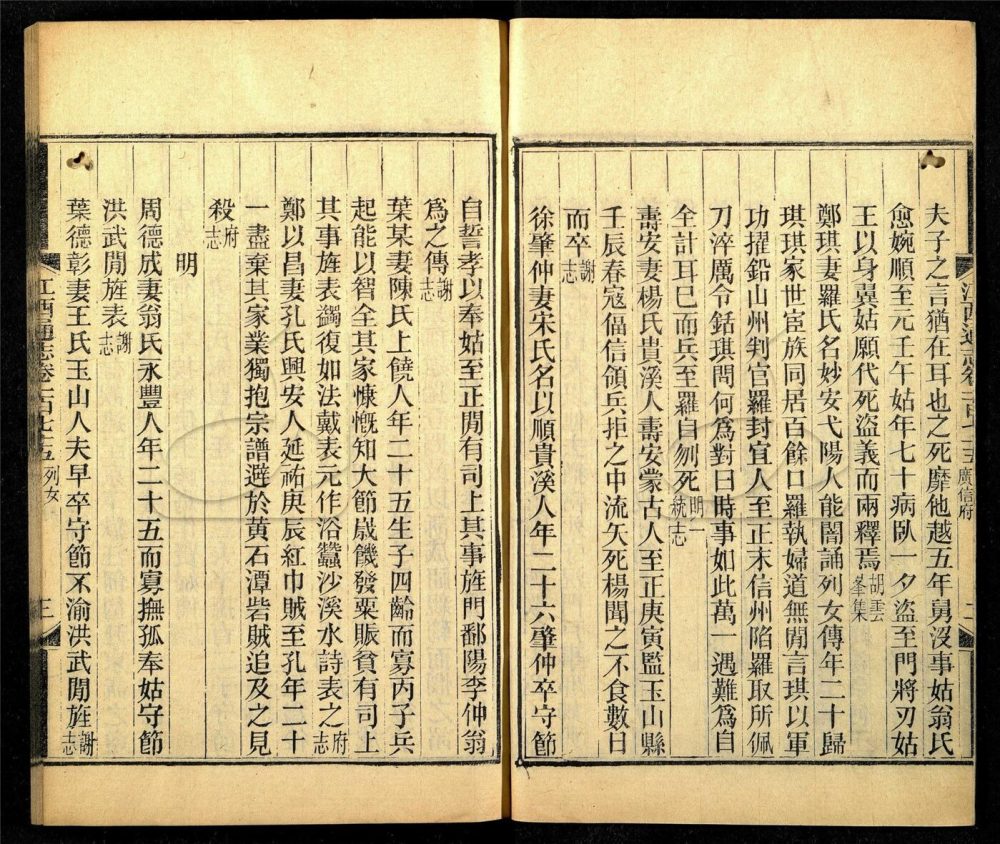 江西通志卷一百七十五 廣信府 二
夫子之言猶在耳也之死靡他越五年舅沒事姑翁氏
愈婉順至元壬午姑年七十病臥一夕盜至門將刃姑
王以身翼姑願代死盜義而兩釋焉胡雲峯集
鄭琪妻羅氏名妙安弋陽人能闇誦列女傳年二十歸
琪琪家世宦族同居百餘口羅執婦道無閒言琪以軍
功擢鉛山州判官羅封宜人至正末信州陷羅取所佩
刀淬厲令銛琪問何爲對曰時事如此萬一遇難爲自
全計耳巳而兵至羅自刎死明一統志
壽安妻楊氏貴溪人壽安蒙古人至正庚寅監玉山縣
壬辰春寇偪信領兵拒之中流矢死楊聞之不食數日
而卒謝志
徐肇仲妻宋氏名以順貴溪人年二十六肇仲卒守節
自誓孝以奉姑至正閒有司上其事旌門鄱陽李仲翁
爲之傳謝志
葉某妻陳氏上饒人年二十五生子四齡而寡丙子兵
起能以智全其家慷慨知大節歲饑發粟賑貧有司上
其事旌表蠲復如法戴表元作浴蠶沙溪水詩表之府志
鄭以昌妻孔氏興安人延祐庚辰紅巾賊至孔年二十
一盡棄其家業獨抱宗譜避於黄石潭砦賊追及之見
殺府志
明
周德成妻翁氏永豐人年二十五而寡撫孤奉姑守節
洪武閒旌表謝志
葉德彰妻王氏玉山人夫早卒守節不渝洪武閒旌謝志
江西通志卷一百七十五 列女 三